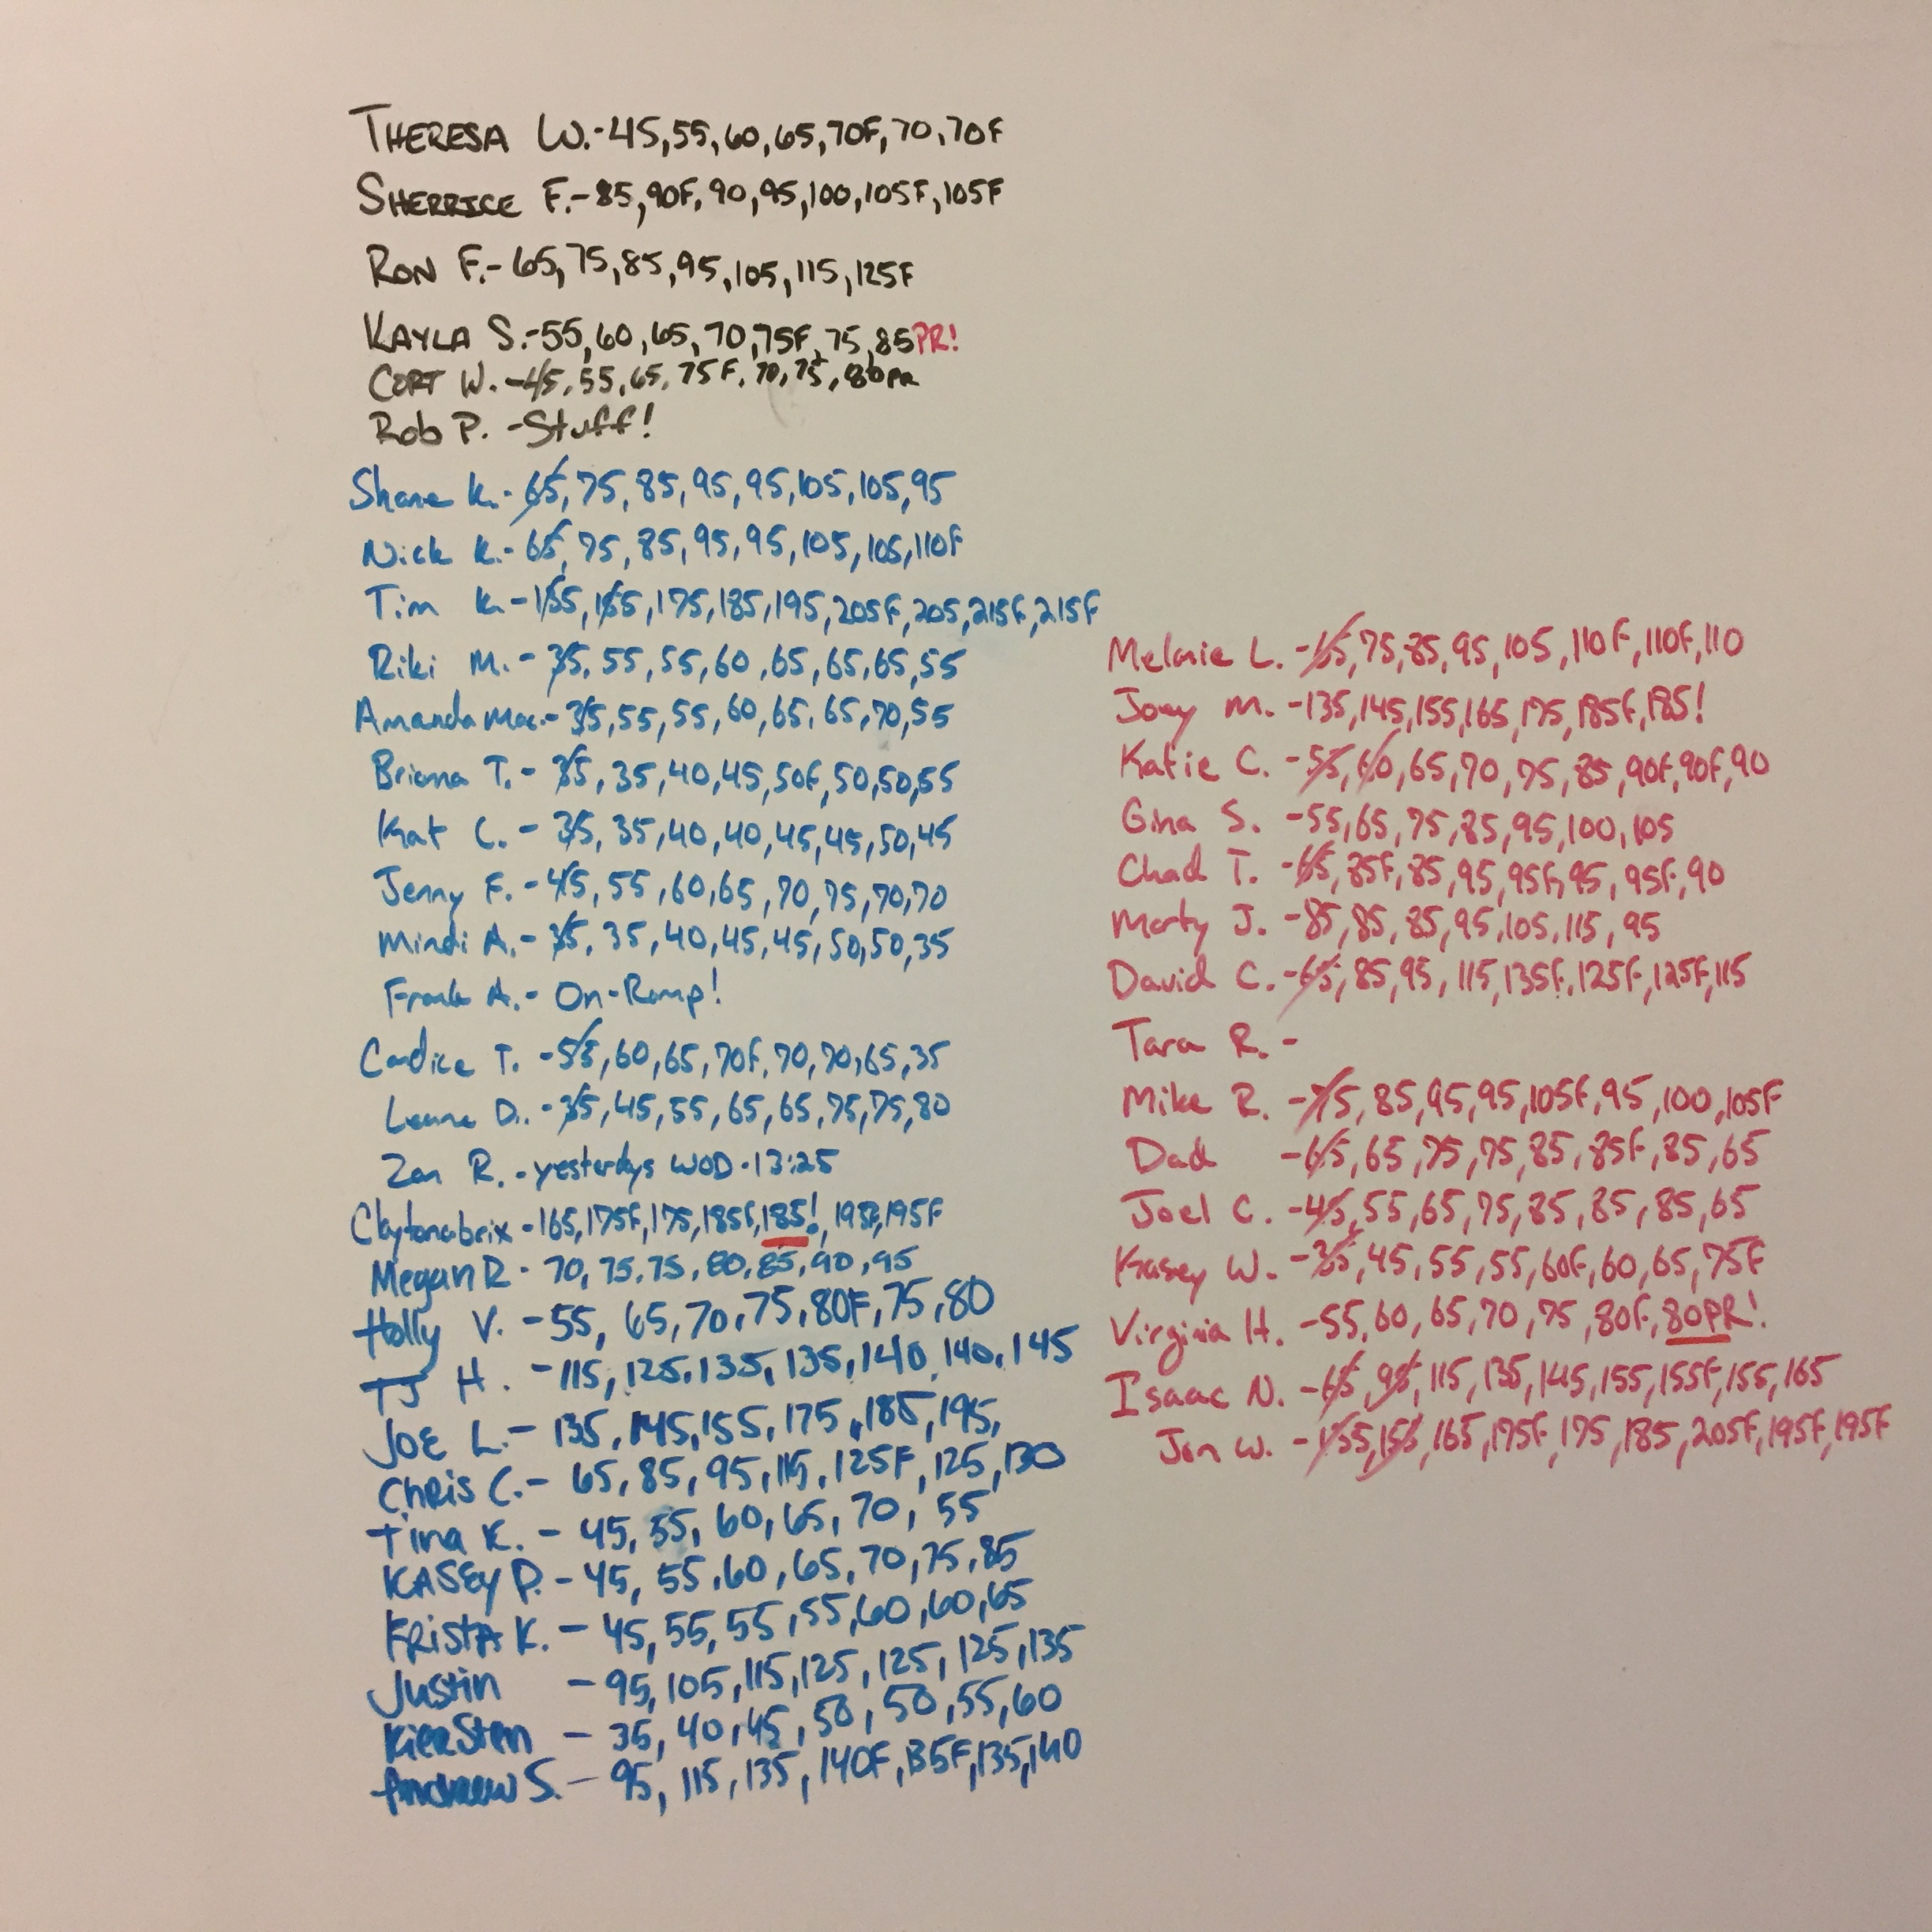 THERESA W.-45,55,60,65,70F,70,70F
SHERRICE F.-85,90F,90,95,100,105F,105F
RON F.-65,75,85,95,105,115,125F
KAYLA S.-55,60,65,70,75F,75,85PR!
CORT W.-45,55,65,75F,70,75,80PR
Rob P. -Stuff!
Shane K.-65,75,85,95,95,105,105,95
Nick K.-65,75,85,95,95,105,105,110F
Tim K.-155,165,175,185,195,205F,205,215F,215F
Riki M.-35,55,55,60,65,65,65,55
Amanda Mac.-35,55,55,60,65,65,70,55
Briana T.-35,35,40,45,50F,50,50,55
Kat C. -35,35,40,40,45,45,50,45
Jenny F.-45,55,60,65,70,75,70,70
Mindi A.-35,35,40,45,45,50,50,35
Frank A.- On-Ramp!
Candice T. -55,60,65,70F,70,70,65,35
Leane D.-35,45,55,65,65,75,75,80
Zan R.-yesterdays WOD-13:25
Claytonabrix-165,175F,175,185F,185!,195F,195F
Megan R-70,75,75,80,85,90,95
Holly V. -55,65,70,75,80F,75,80
TJ H. -115,125,135,135,140,140,145
JOE L.-135,145,155,175,185,195,
CHRIS C.-65,85,95,115,125F,125,130
Tina K. -45,55,60,65,70,55
KASEY P.-45,55,60,65,70,75,85
KRISTA K. -45,55,55,55,60,60,65
Justin -95,105,115,125,125,125,135
KierSten -35,40,45,50,50,55,60
Andrew S.-95,115,135,140F,135F,135,140
Melanie L.-65,75,85,95,105,110F,110F,110
Joey M. -135,145,155,165,175,185F,185!
Katie C. -55,60,65,70,75,85,90F,90F,90
Gina S. -55,65,75,85,95,100,105
Chad T. -65,85F,85,95,95F,95,95F,90
Marty J. -85,85,85,95,105,115,95
David C.-65,85,95,115,135F,125F,125F,115
Tara R. -
Mike R. -75,85,95,95,105F,95,100,105F
Dad -65,65,75,75,85,85F,85,65
Joel C. -45,55,65,75,85,85,85,65
Kasey W. -35,45,55,55,60F,60,65,75F
Virginia H. -55,60,65,70,75,80F,80PR!
Isaac N. -65,95,115,135,145,155,155F,155,165
Jon W. -155,155,165,175F,175,185,205F,195F,195F